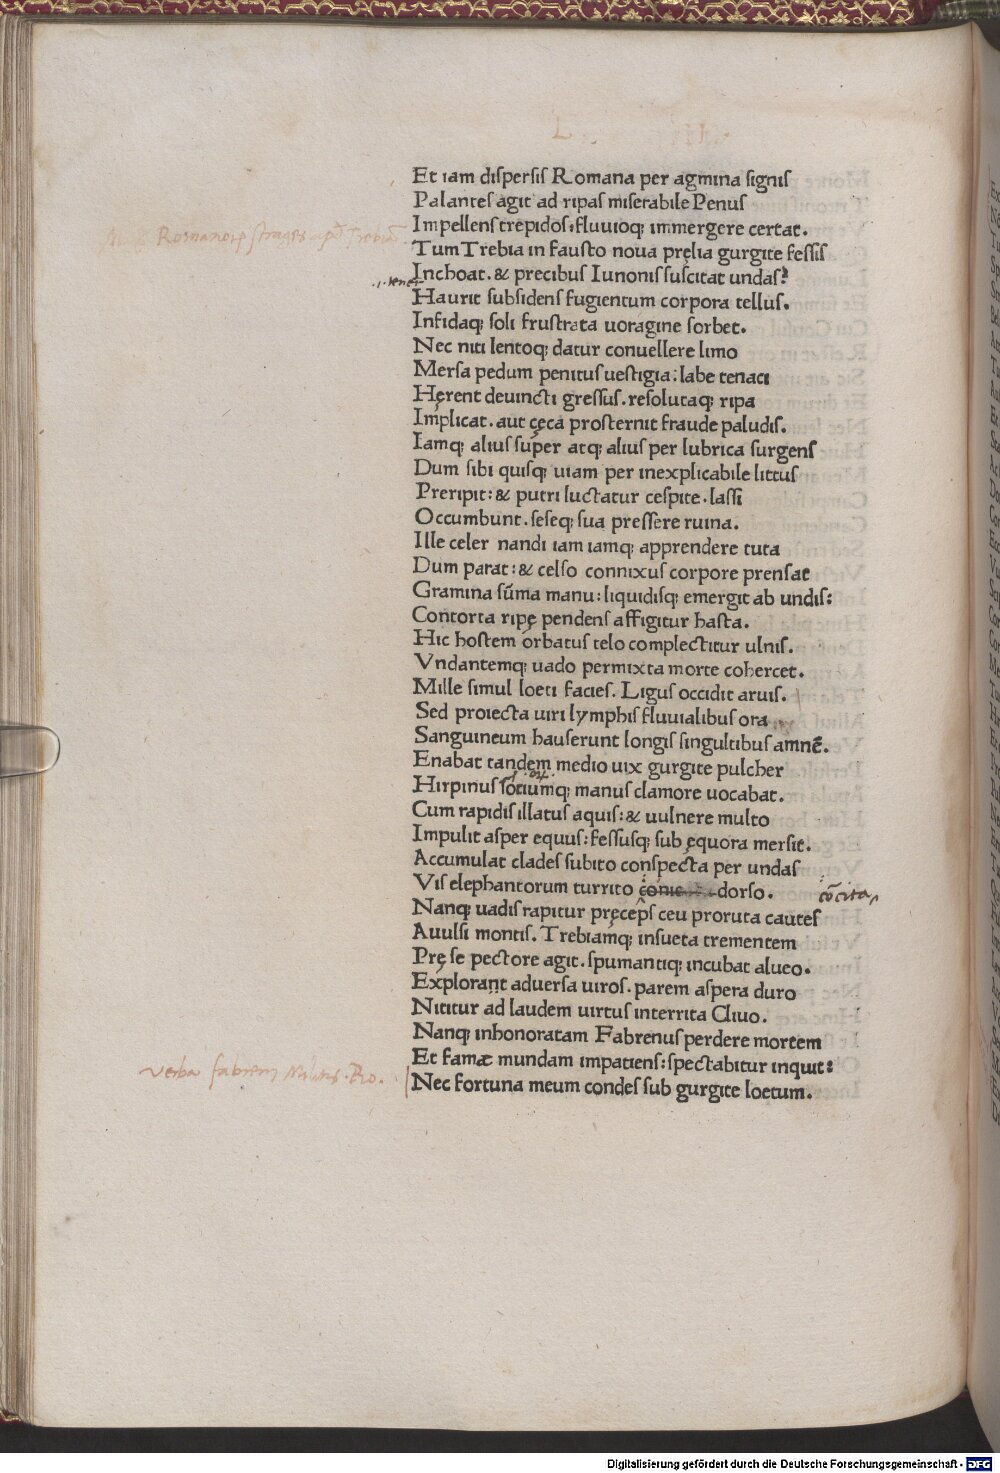 Et iam dispersis Romana per agmina signis
Palantes agit ad ripas miserabile Penus
Romanorꝝ strages apd Trebiā
Impellens trepidos: fluuioq; immergere certat.
Tum Trebia in fausto noua pręlia gurgite fessis
Inchoat. & precibus Iunonis suscitat undas:
Haurit subsidens fugientum corpora tellus.
Infidaq; soli frustrata uoragine sorbet.
Nec niti lentoq; datur conuellere limo
Mersa pedum penitus uestigia: labe tenaci
Hęrent deuincti gressus. resolutaq; ripa
Implicat. aut cęca prosternit fraude paludis.
Iamq; alius super atq; alius per lubrica surgens
Dum sibi quisq; uiam per inexplicabile littus
Preripit: & putri luctatur cespite. lassi
Occumbunt. seseq; sua pressere ruina.
Ille celer nandi iam iamq; apprendere tuta
Dum parat: & celso connixus corpore prensat
Gramina sūma manu: liquidisq; emergit ab undis:
Contorta ripę pendens affigitur hasta.
Hic hostem orbatus telo complectitur ulnis.
Vndantemq; uado permixta morte cohercet.
Mille simul loeti facies. Ligus occidit aruis.
Sed proiecta uiri lymphis fluuialibus ora
Sanguineum hauserunt longis singultibus amnē.
Enabat tandem medio uix gurgite pulcher
Hirpinus sotiumq; manus clamore uocabat.
Cum rapidis illatus aquis: & uulnere multo
Impulit asper equus: fessusq; sub ęquora mersit.
Accumulat clades subito conspecta per undas
Vis elephantorum turrito dorso. cōcita
Nanq; uadis rapitur pręceps ceu proruta cautes
Auulsi montis. Trebiamq; insueta trementem
Prę se pectore agit. spumantiq; incubat alueo.
Explorant aduersa uiros. parem aspera duro
Nititur ad laudem uirtus interrita Cliuo.
Nanq; inhonoratam Fabrenus perdere mortem
Et famæ mundam impatiens: spectabitur inquit:
verba fabreni Militis. Ro.
Nec fortuna meum condes sub gurgite loetum.
Digitalisierung gefördert durch die Deutsche Forschungsgemeinschaft - DFG